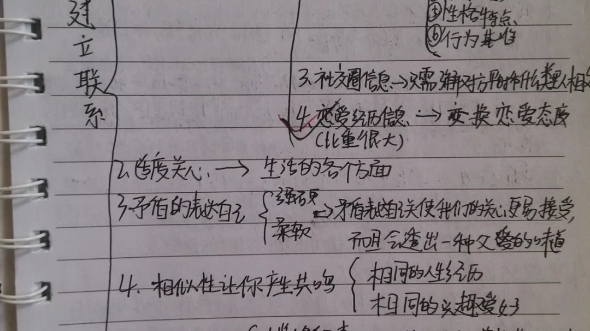 建立联系
③性格特点、
⑥行为基准
3.社交圈信息→只需理解对方平时和什么类型人相处
4.恋爱经历信息→变换恋爱态度
(比重很大)
2.适度关心→生活的各个方面
3.矛盾的表达自己
强硬
柔软
→矛盾表达自己会使我们的关心更易接受,
而且会透出一种父爱的味道
4.相似性让你产生共鸣
相同的人生经历
相同的兴趣爱好